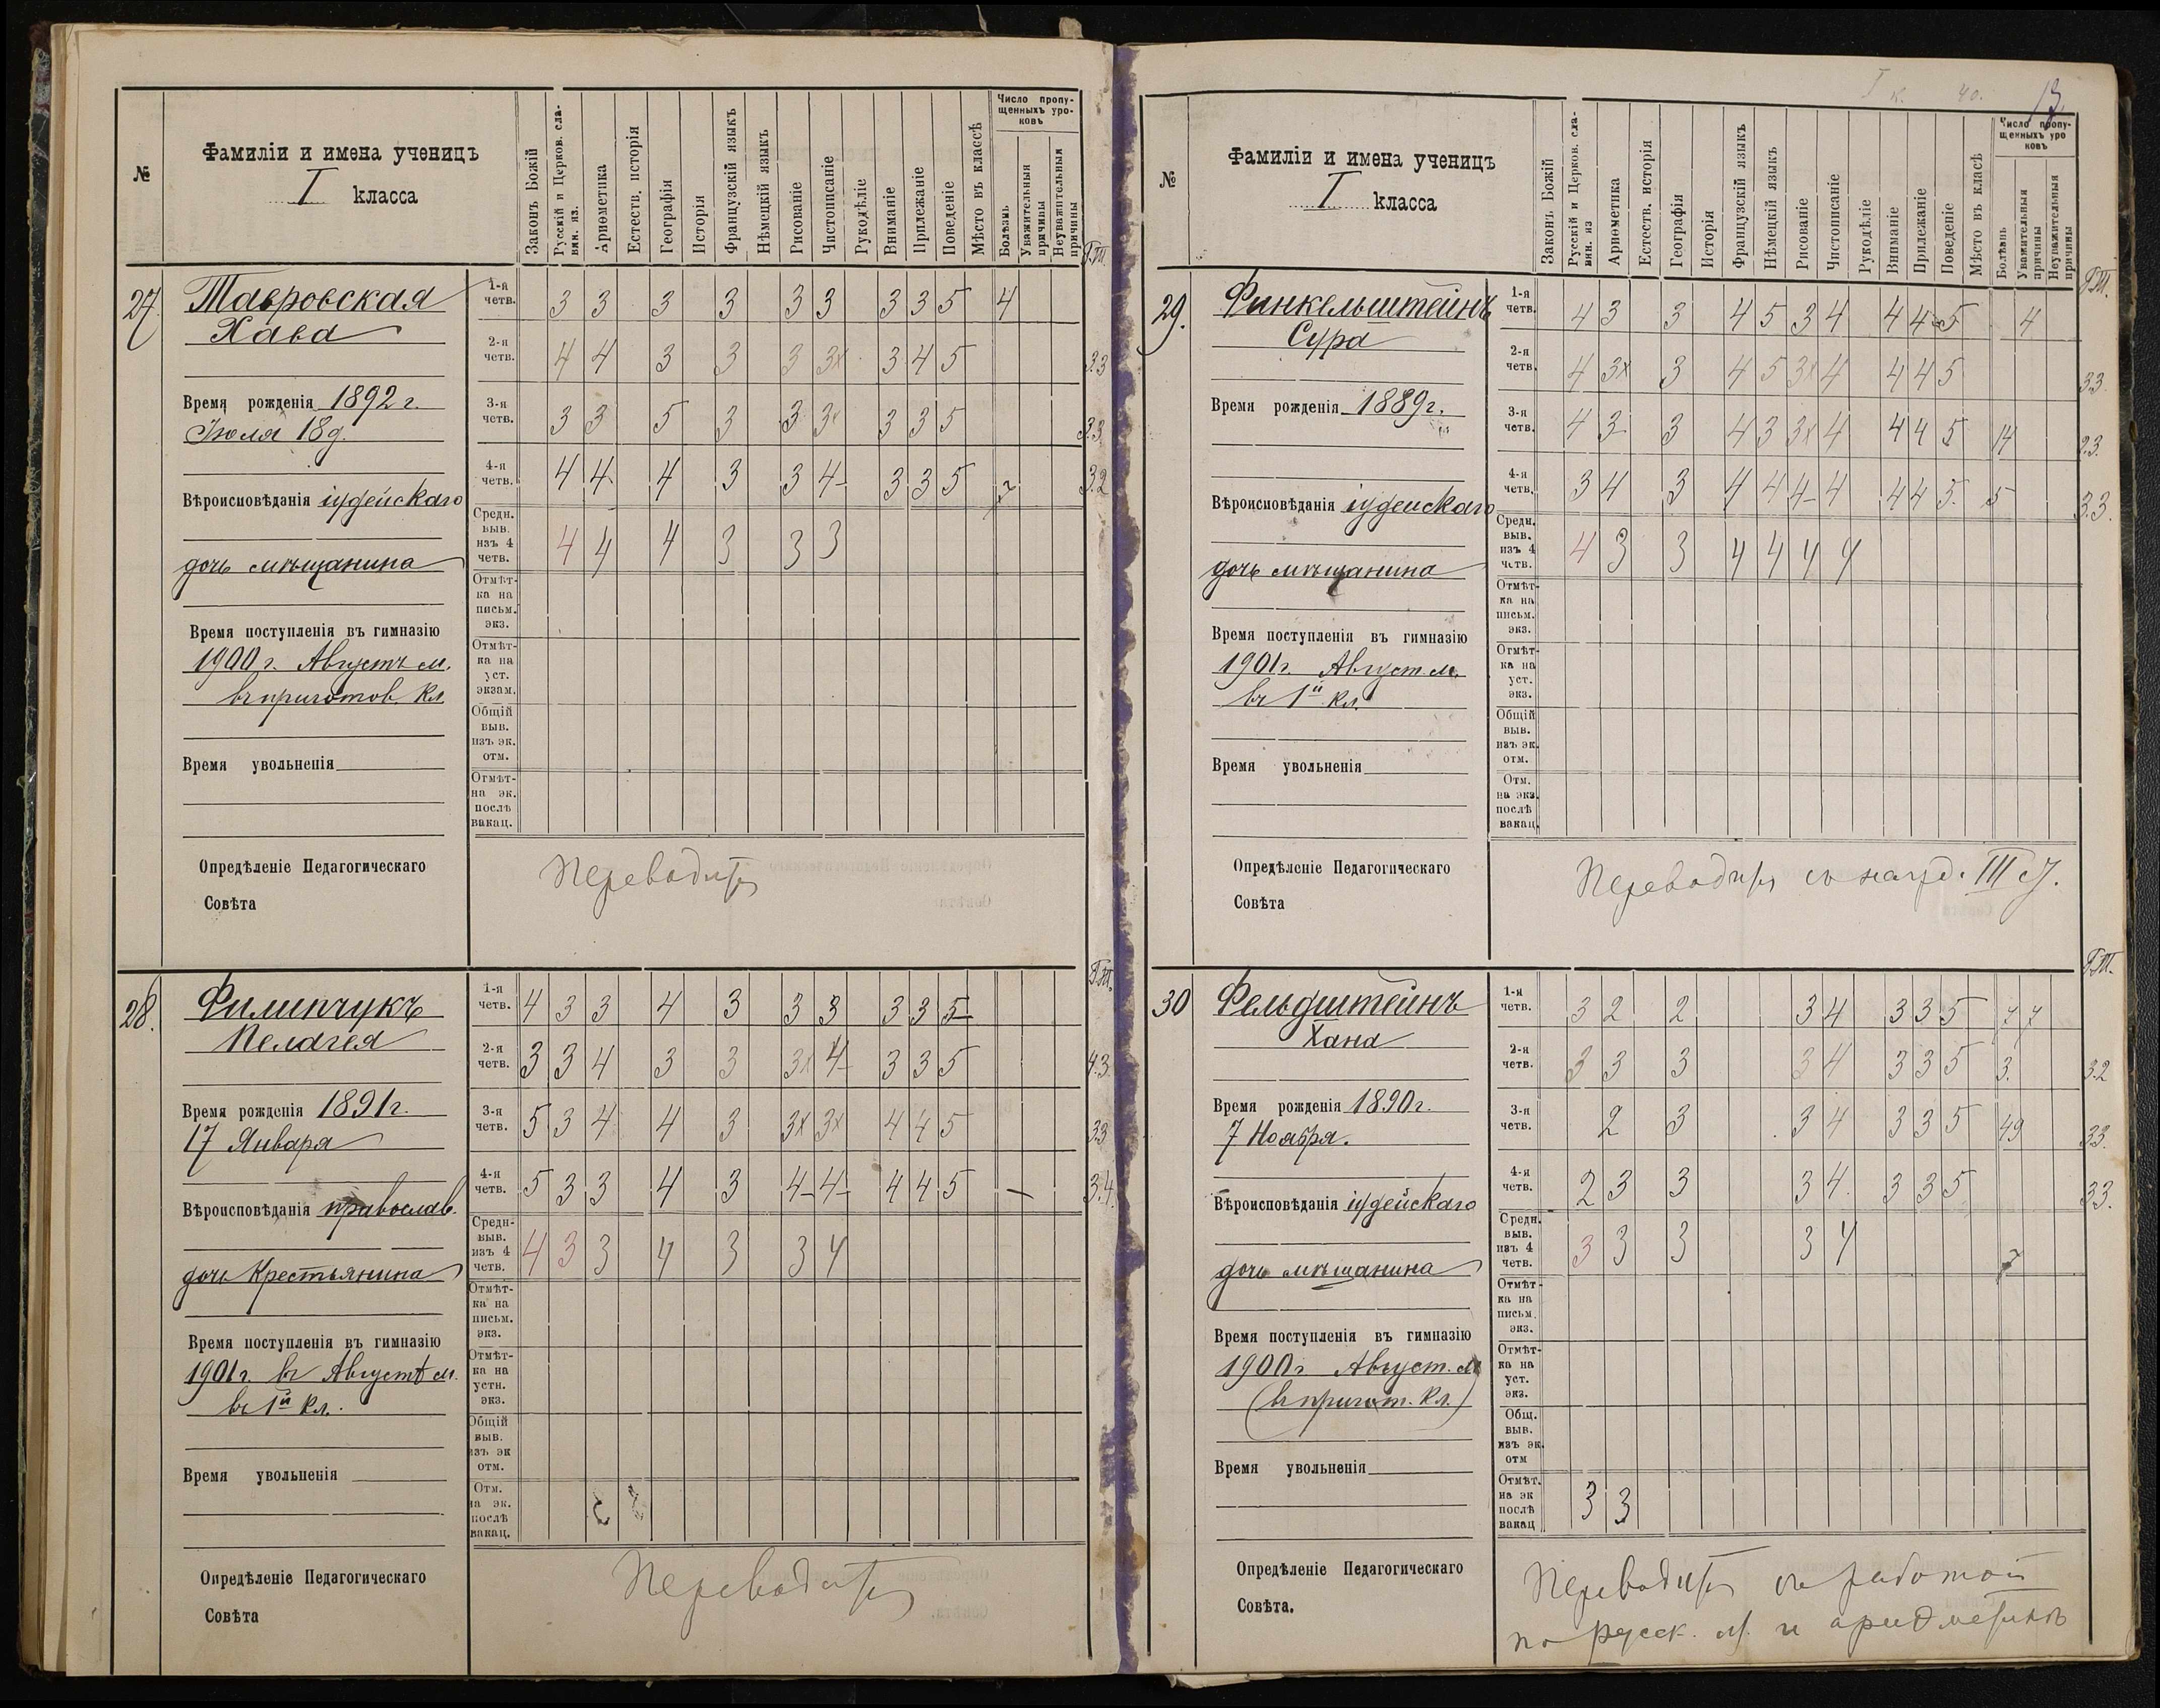 №
Фамиліи и имена ученицъ
I класса
Законъ Божій
Русскій и Церков. сла-
вян. яз.
Ариѳметика
Естеств. исторія
Географія
Исторія
Французскій языкъ
Нѣмецкій языкъ
Рисованіе
Чистописаніе
Рукодѣліе
Вниманіе
Прилежаніе
Поведеніе
Мѣсто въ классѣ
Число пропу-
щенныхъ уро-
ковъ
Болѣзнь
Уважительныя
причины
Неуважительныя
причины
27.
Тавровская
Хава
Время рожденія 1892 г.
Іюля 18 д.
Вѣроисповѣданія іудейскаго
дочь мѣщанина
Время поступленія въ гимназію
1900 г. Августъ м.
въ приготов. кл.
Время увольненія
1-я четв. 3 3 3 3 3 3 3 3 5 4
2-я четв. 4 4 3 3 3 3х 3 4 5 3.3
3-я четв. 3 3 5 3 3 3х 3 3 5 3.3
4-я четв. 4 4 4 3 3 4- 3 3 5 3.2
Средн. выв. изъ 4 четв. 4 4 4 3 3 3
Отмѣт-
ка на
письм.
экз.
Отмѣт-
ка на
уст.
экзам.
Общій
выв.
изъ эк.
отм.
Отмѣт-
на эк.
послѣ
вакац.
Опредѣленіе Педагогическаго
Совѣта
Переводится
28.
Филипчукъ
Пелагея
Время рожденія 1891 г.
17 Января
Вѣроисповѣданія православ.
дочь Крестьянина
Время поступленія въ гимназію
1901 г. въ Августѣ м.
въ 1й кл.
Время увольненія
1-я четв. 4 3 3 4 3 3 3 3 3 5
2-я четв. 3 3 4 3 3 3х 4- 3 3 5 4.3.
3-я четв. 5 3 4 4 3 3х 3х 4 4 5 3.3
4-я четв. 5 3 3 4 3 4- 4- 4 4 5 — 3.4.
Средн- выв. изъ 4 четв. 4 3 3 4 3 3 4
Отмѣт-
ка на
письм.
экз.
Отмѣт-
ка на
устн.
экз.
Общій
выв.
изъ эк
отм.
Отм.
на эк.
послѣ
вакац.
Опредѣленіе Педагогическаго
Совѣта
Переводится
№
Фамиліи и имена ученицъ
I класса
Законъ Божій
Русскій и Церков. сла-
вян. яз
Ариѳметика
Естеств. исторія
Географія
Исторія
Французскій языкъ
Нѣмецкій языкъ
Рисованіе
Чистописаніе
Рукодѣліе
Вниманіе
Прилежаніе
Поведеніе
Мѣсто въ класѣ
Число пропу-
щенныхъ уро
ковъ
Болѣзнь
Уважительныя
причины
Неуважительныя
причины
29.
Финкельштейнъ
Сура
Время рожденія 1889 г.
Вѣроисповѣданія іудейскаго
дочь мѣщанина
Время поступленія въ гимназію
1901 г. Август. м.
въ 1й кл.
Время увольненія
1-я четв. 4 3 3 4 5 3 4 4 4 5 4
2-я четв. 4 3х 3 4 5 3х 4 4 4 5 3.3.
3-я четв. 4 3 3 4 3 3х 4 4 4 5 14 2.3.
4-я четв. 3 4 3 4 4 4- 4 4 4 5 5 3.3.
Средн. выв. изъ 4 четв. 4 3 3 4 4 4 4
Отмѣт-
ка на
письм.
экз.
Отмѣт-
ка на
уст.
экз.
Общій
выв.
изъ эк.
отм.
Отм.
на экз.
послѣ
вакац.
Опредѣленіе Педагогическаго
Совѣта
Переводится съ нагр. III ст.
30
Фельдштейнъ
Хана
Время рожденія 1890 г.
7 Ноября.
Вѣроисповѣданія іудейскаго
дочь мѣщанина
Время поступленія въ гимназію
1900 г. Август. м
(въ пригот. кл.)
Время увольненія
1-я четв. 3 2 2 3 4 3 3 5 7 7
2-я четв. 3 3 3 3 4 3 3 5 3. 3.2
3-я четв. 2 3 3 4 3 3 5 49 3.3.
4-я четв. 2 3 3 3 4 3 3 5 3.3.
Средн. выв. изъ 4 четв. 3 3 3 3 4 7
Отмѣт-
ка на
письм.
экз.
Отмѣт-
ка на
уст.
экз.
Общ.
выв.
изъ эк.
отм
Отмѣт.
на эк
послѣ
вакац 3 3
Опредѣленіе Педагогическаго
Совѣта.
Переводится съ работой
по русск. яз. и ариѳметикѣ